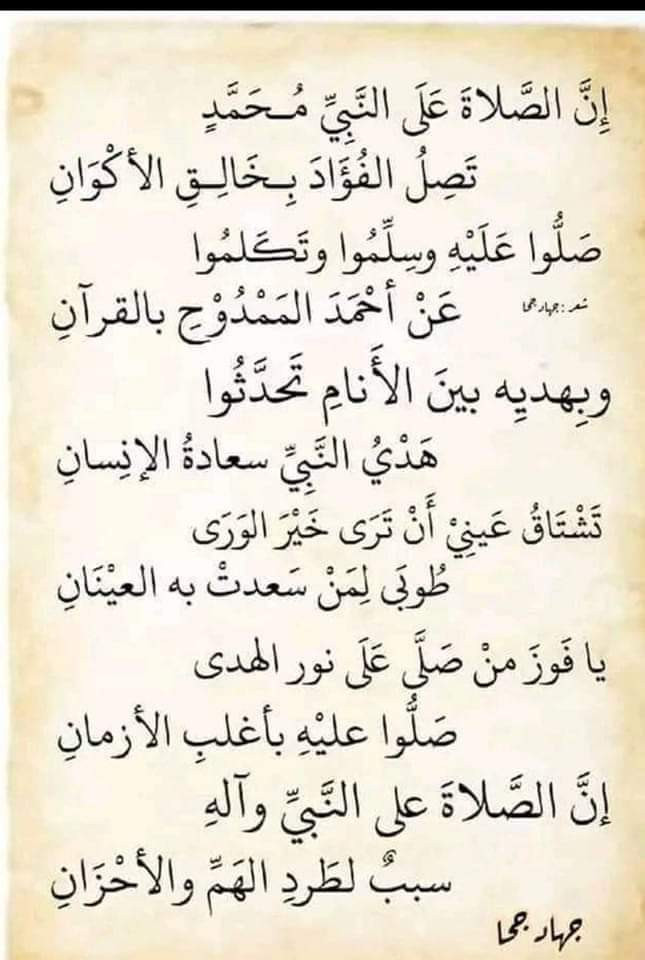 إِنَّ الصَّلاةَ عَلَى النَّبِيِّ مُـحَمَّدٍ
تَصِلُ الفُؤَادَ بِـخَالِـقِ الأَكْوَانِ
صَلُّوا عَلَيْهِ وسِلِّمُوا وتَكَلمُوا
شعر : جهاد جحا
عَنْ أحْمَدَ المَمْدُوْحِ بالقرآنِ
وبِهديِه بينَ الأَنامِ تَحَدَّثُوا
هَدْيُ النَّبِيِّ سعادةُ الإنِسانِ
تَشْتَاقُ عَينِيْ أَنْ تَرَى خَيْرَ الوَرَى
طُوبَى لِمَنْ سَعدتْ به العيْنَانِ
يا فَوزَ منْ صَلَّى عَلَى نور الهدى
صَلُّوا عليْهِ بأغلبِ الأزمانِ
إنَّ الصَّلاةَ على النَّبِيِّ وآلهِ
سببٌ لطَردِ الهَمِّ والأحْزَانِ
جهاد جحا